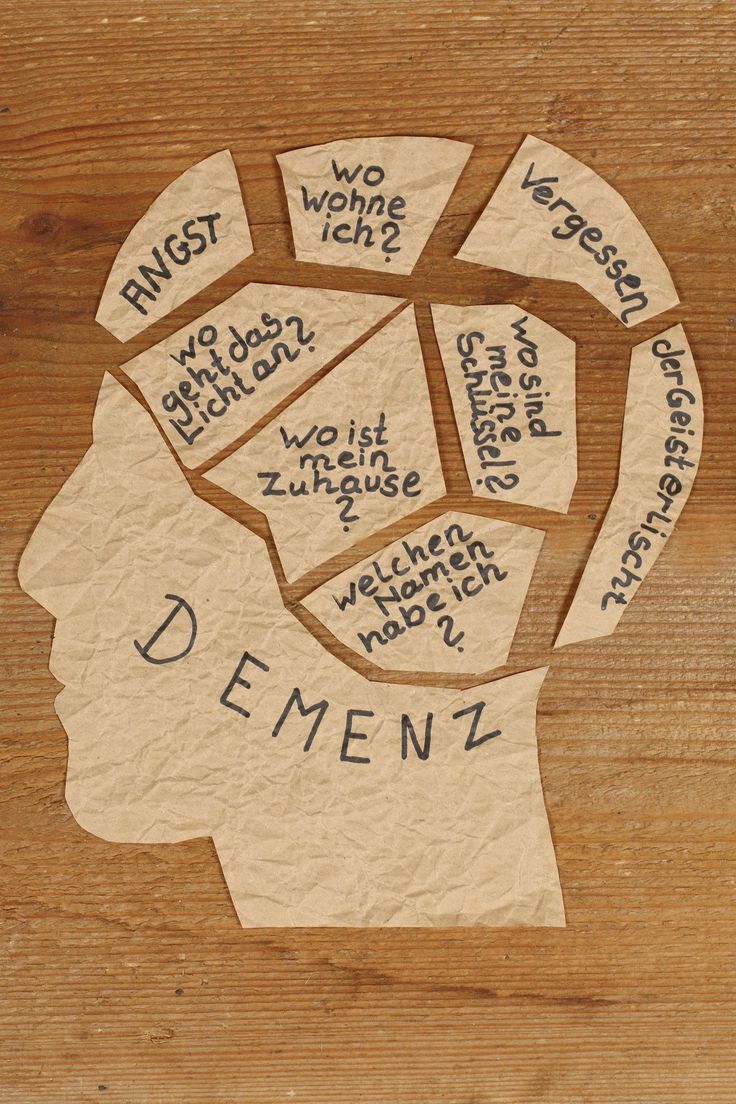 ANGST
wo
wohne
ich?
Vergessen
wo
geht das
Licht an?
wo ist
mein
Zuhause
?
wo sind
meine
Schlüssel?
der Geist erlischt
welchen
Namen
habe ich
?
DEMENZ